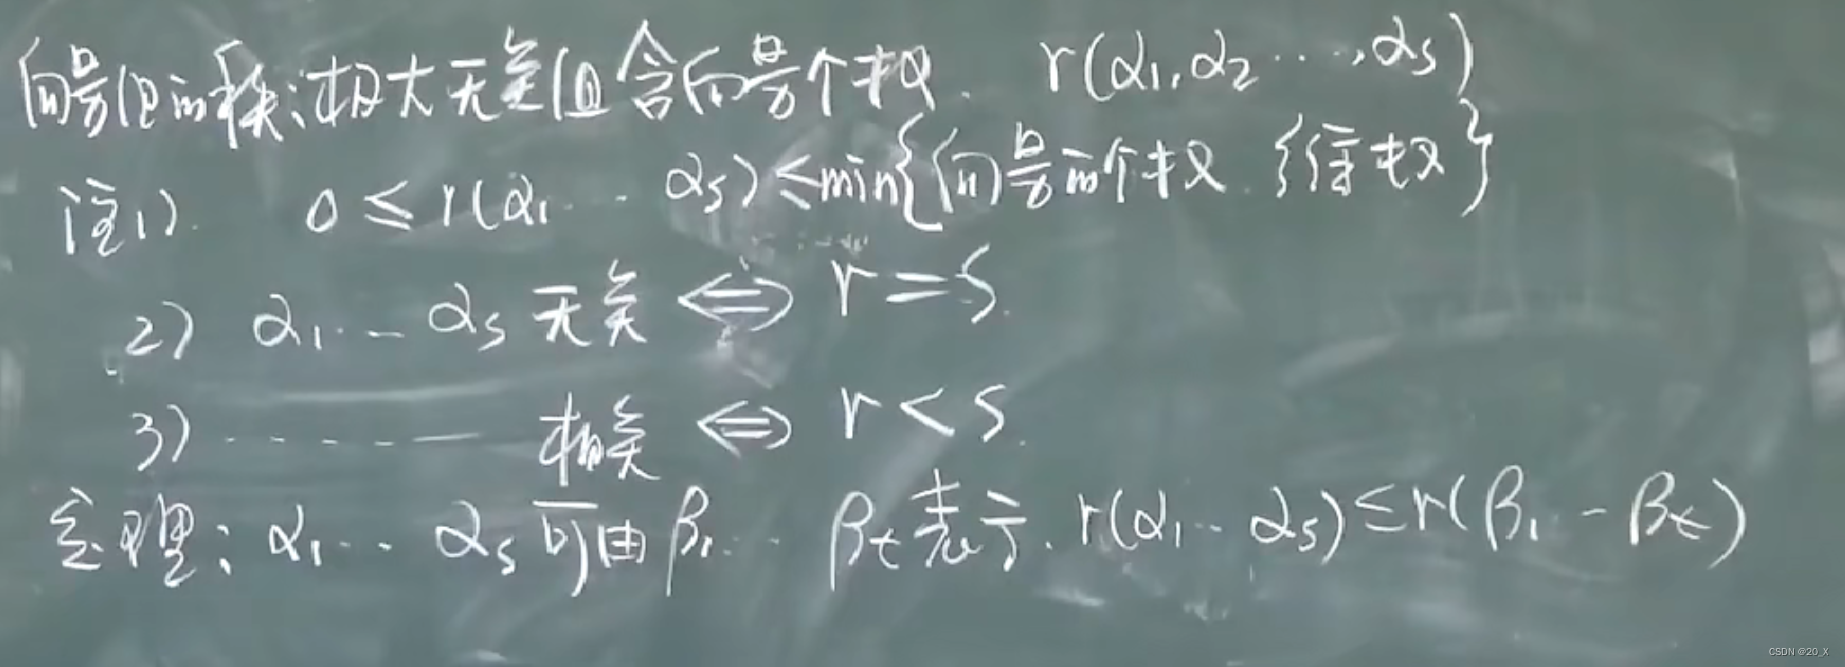 向量组的秩:极大无关组含向量个数. r(α₁,α₂⋯,αs)
注1) 0≤r(α₁⋯αs)≤min{向量的个数.维数}
2) α₁⋯αs无关⇔r=s.
3)⋯⋯相关⇔r<s.
定理:α₁⋯αs可由β₁⋯βt表示.r(α₁⋯αs)≤r(β₁-βt)
CSDN @20_X